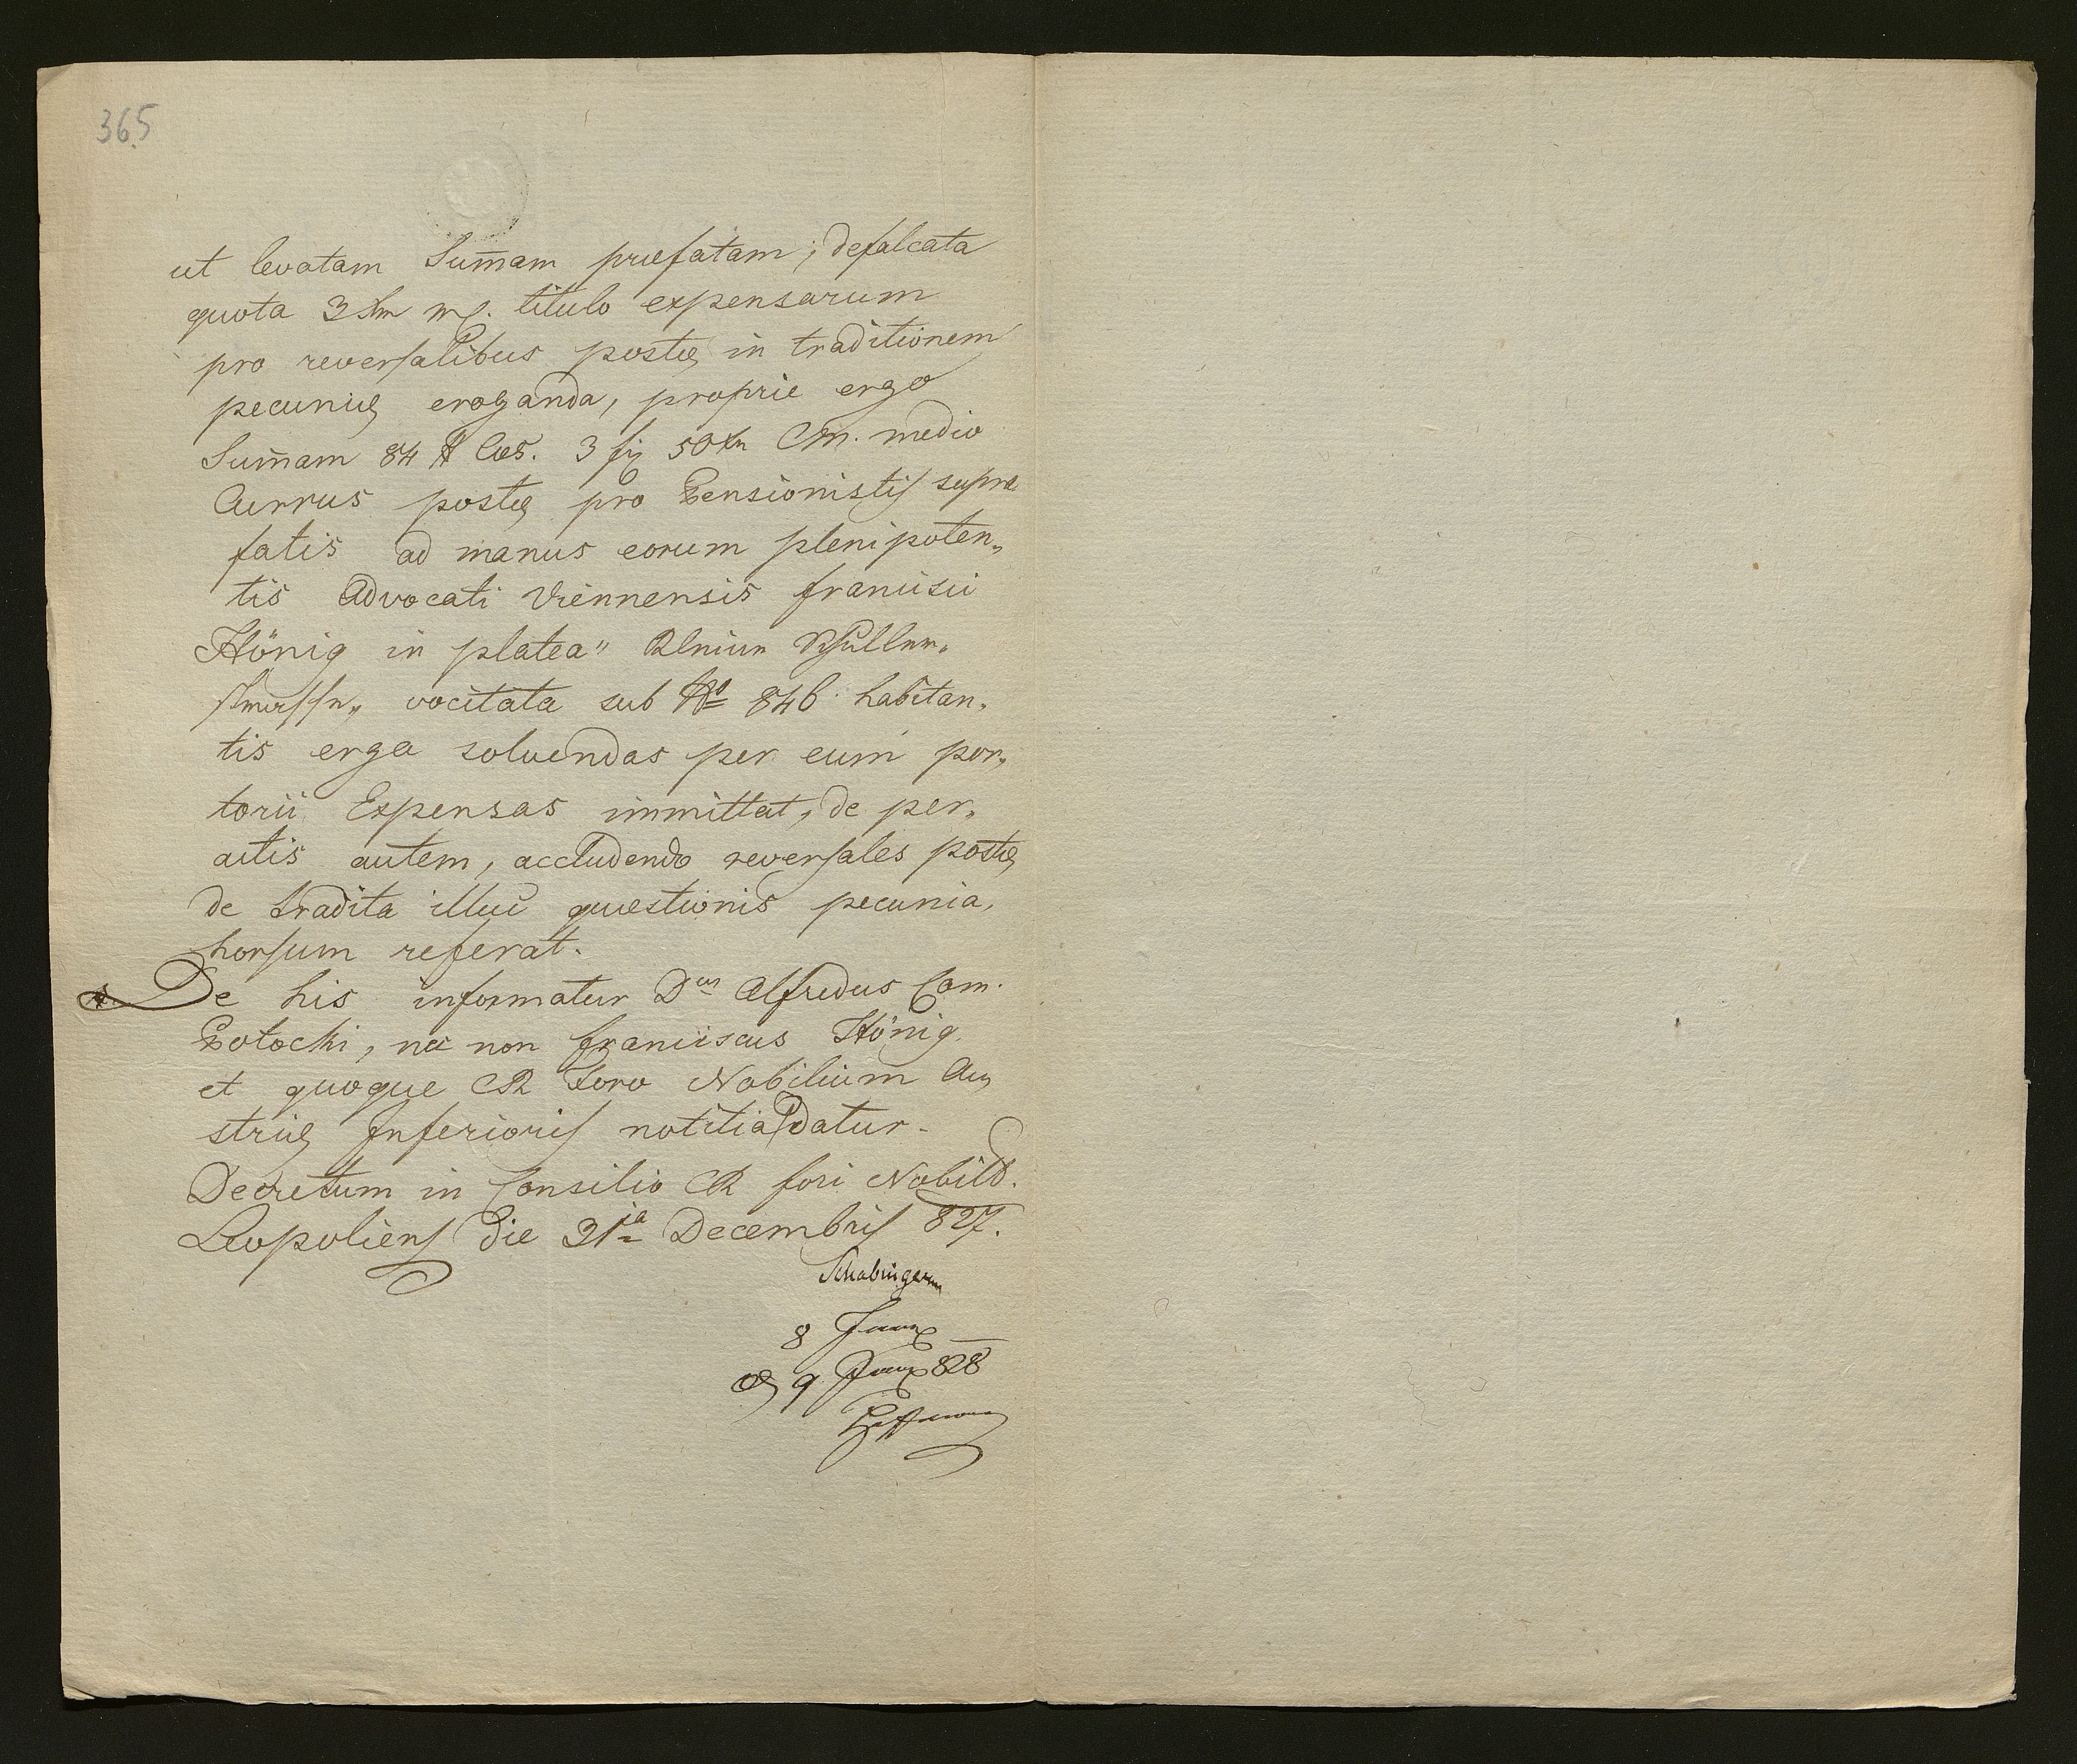 365
ut levatam Sum̄am præfatam, defalcata
quota 3 Xrn titulo expensarum
pro reversalibus postæ in traditionem
pecuniæ eroganda, proprie ergo
Sum̄am 84 # Cæs. 3 f 50 Xrn CM. medio
Currus postæ pro Pensionistis supra
fatis ad manus eorum plenipoten„
tis Advocati Viennensis francisci
Hönig in platea"
vocitata sub No 846 habitan„
tis erga solvendas per eum por„
torii Expensas immittat, de per„
actis autem, accludendo reversales postæ
de tradita illuc quæstionis pecunia,
horsum referat.
De his informatur Dnus Alfredus Com.
Potocki, nec non franciscus Hönig
et quoque CR Foro Nobilium Au„
striæ Inferioris notitia datur.
Decretum in Consilio CR fori Nobil.
Leopoliens die 31a Decembris 827.
8
9 828